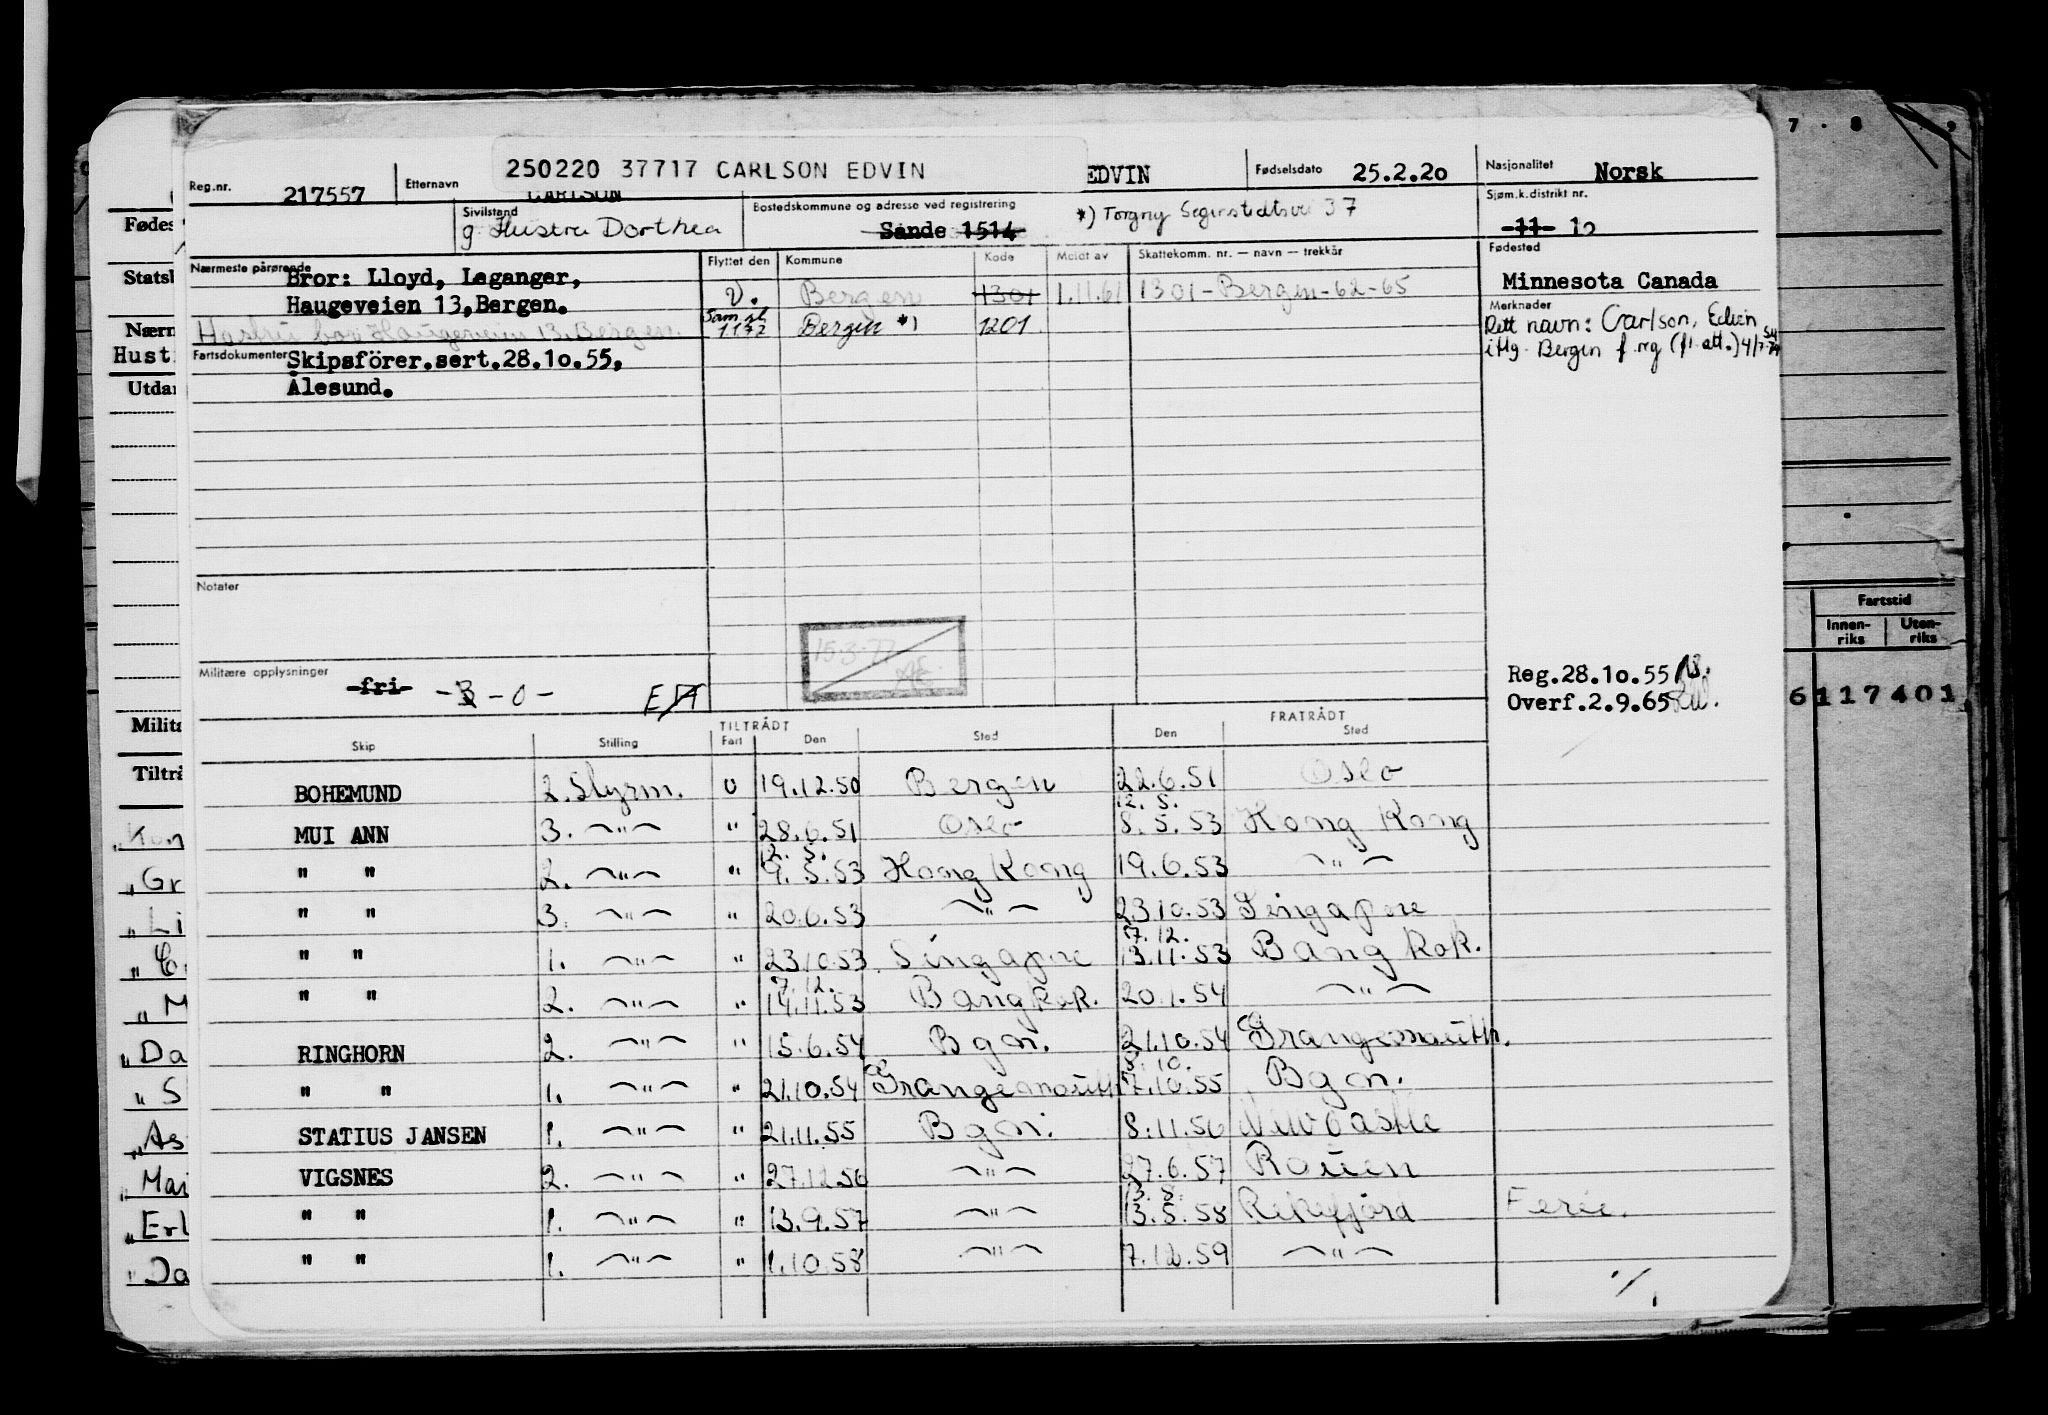 7 . 8 . 9
250220 37717 CARLSON EDVIN
Reg.nr. 217557 Etternavn CARLSON EDVIN Fødselsdato 25.2.20 Nasjonalitet Norsk
Sivilstand g Hustru Dorthea Bostedskommune og adresse ved registrering Sande 1514 *) Torgny Segerstedtsvei 37 Sjøm.k.distrikt nr. 11 12
Fødes
Nærmeste pårørende Bror: Lloyd, Leganger, Flyttet den Kommune Kode Meldt av Skattekomm. nr. — navn — trekkår Fødested
Statsb
Haugeveien 13,Bergen. V. Bergen 1301 1.11.61 1301-Bergen-62-65 Minnesota Canada
Nærm
Hustru bor Haugeveien 13, Bergen. 1172 Bergen *) 1201 Merknader Rett navn: Carlson, Edvin
Hust
Fartsdokumenter Skipsförer.sert.28.10.55, iflg. Bergen f.reg (fl. att.) 4/7-74
Utdan
Ålesund.
Notater
Fartstid
Innen-riks Uten-riks
15.3.77
Militære opplysninger fri -3-0- Reg.28.10.55
Overf.2.9.65
6117401
Milita
TILTRÅDT FRATRÅDT
Skip Stilling Fart Den Sted Den Sted
Tiltrå
BOHEMUND 2. Styrm. U 19.12.50 Bergen 22.6.51 Oslo
12. 5.
MUI ANN 3. —"— " 28.6.51 Oslo 8.5.53 Hong Kong
12. 5.
" " 2. —"— " 9.5.53 Hong Kong 19.6.53 —"—
" " 3. —"— " 20.6.53 —"— 23.10.53 Singapore
7.12.
" " 1. —"— " 23.10.53 Singapore 13.11.53 Bangkok.
7.12.
" " 2. —"— " 14.11.53 Bangkok. 20.1.54 —"—
RINGHORN 2. —"— " 15.6.54 Bgn. 21.10.54 Grangemouth.
8.10.
" " 1. —"— " 21.10.54 Grangemouth 7.10.55 Bgn.
STATIUS JANSEN 1. —"— " 21.11.55 Bgn. 8.11.56 Newcastle
VIGSNES 2. —"— " 27.12.56 —"— 27.6.57 Rouen
13.8.
" " 1. —"— " 13.9.57 —"— 13.5.58 Rekefjord Ferie.
" " 1. —"— " 1.10.58 —"— 7.12.59 —"—
"Gr
"Li
"M
"Da
"S
"As
"Mai
"Erl
"Da